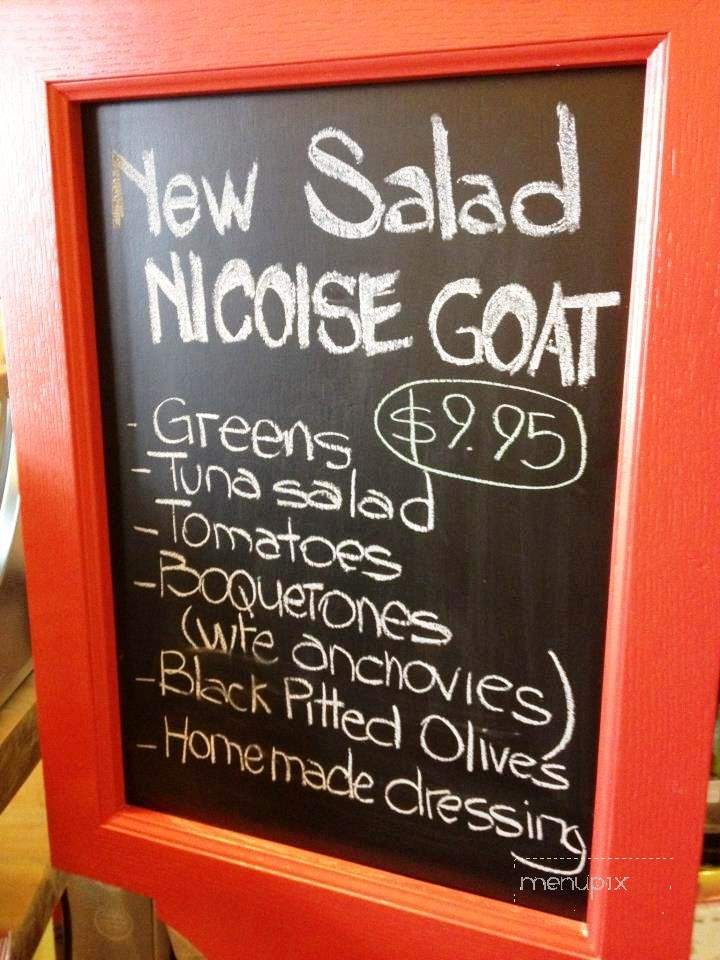 New Salad
NICOISE GOAT
$9.95
- Greens
- Tuna salad
- Tomatoes
- BOQUETONES
(wte anchovies)
- Black Pitted Olives
- Homemade dressing
menupix